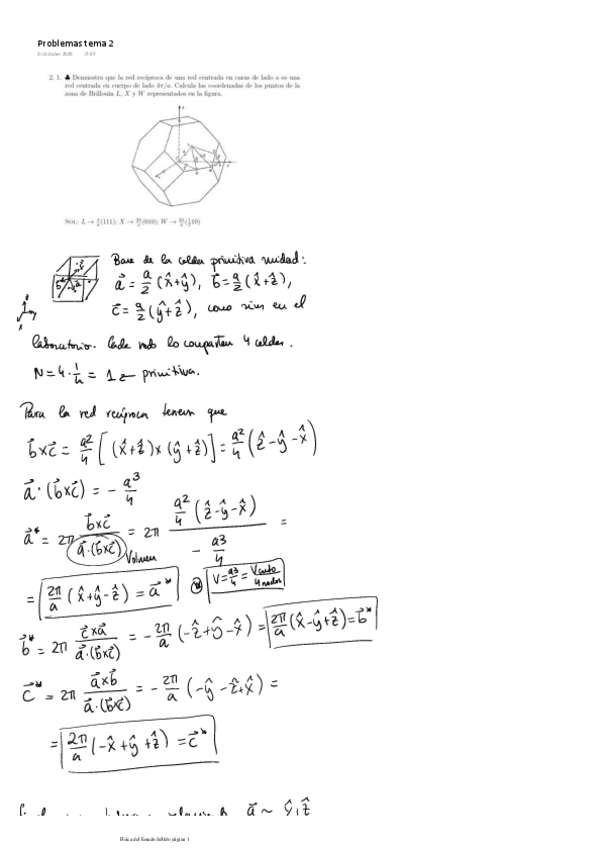 Problemas tema 2
2. 1. ♣ Demuestra que la red recíproca de una red centrada en caras de lado a es una
red centrada en cuerpo de lado 4π/a. Calcula las coordenadas de los puntos de la
zona de Brillouin L, X y W representados en la figura.
Sol.: L → π/a(111); X → 2π/a(010); W → 2π/a(½10)
Base de la celda primitiva unidad:
a⃗ = a/2 (x̂+ŷ), b⃗ = a/2 (x̂+ẑ),
c⃗ = a/2 (ŷ+ẑ), como vimos en el
laboratorio. Cada nodo lo comparten 4 celdas.
N = 4·1/4 = 1 ← primitiva.
Para la red recíproca tenemos que
b⃗×c⃗ = a²/4 [(x̂+ẑ)×(ŷ+ẑ)] = a²/4 (ẑ-ŷ-x̂)
a⃗·(b⃗×c⃗) = - a³/4
a⃗* = 2π b⃗×c⃗ / a⃗·(b⃗×c⃗) = 2π a²/4 (ẑ-ŷ-x̂) / - a³/4 =
Volumen
= 2π/a (x̂+ŷ-ẑ) = a⃗*
V = a³/4 = Vcubo / 4 nodos
b⃗* = 2π c⃗×a⃗ / a⃗·(b⃗×c⃗) = - 2π/a (-ẑ+ŷ-x̂) = 2π/a (x̂-ŷ+ẑ) = b⃗*
c⃗* = 2π a⃗×b⃗ / a⃗·(b⃗×c⃗) = - 2π/a (-ŷ-ẑ+x̂) =
= 2π/a (-x̂+ŷ+ẑ) = c⃗*
a⃗ ~ ŷ, ẑ